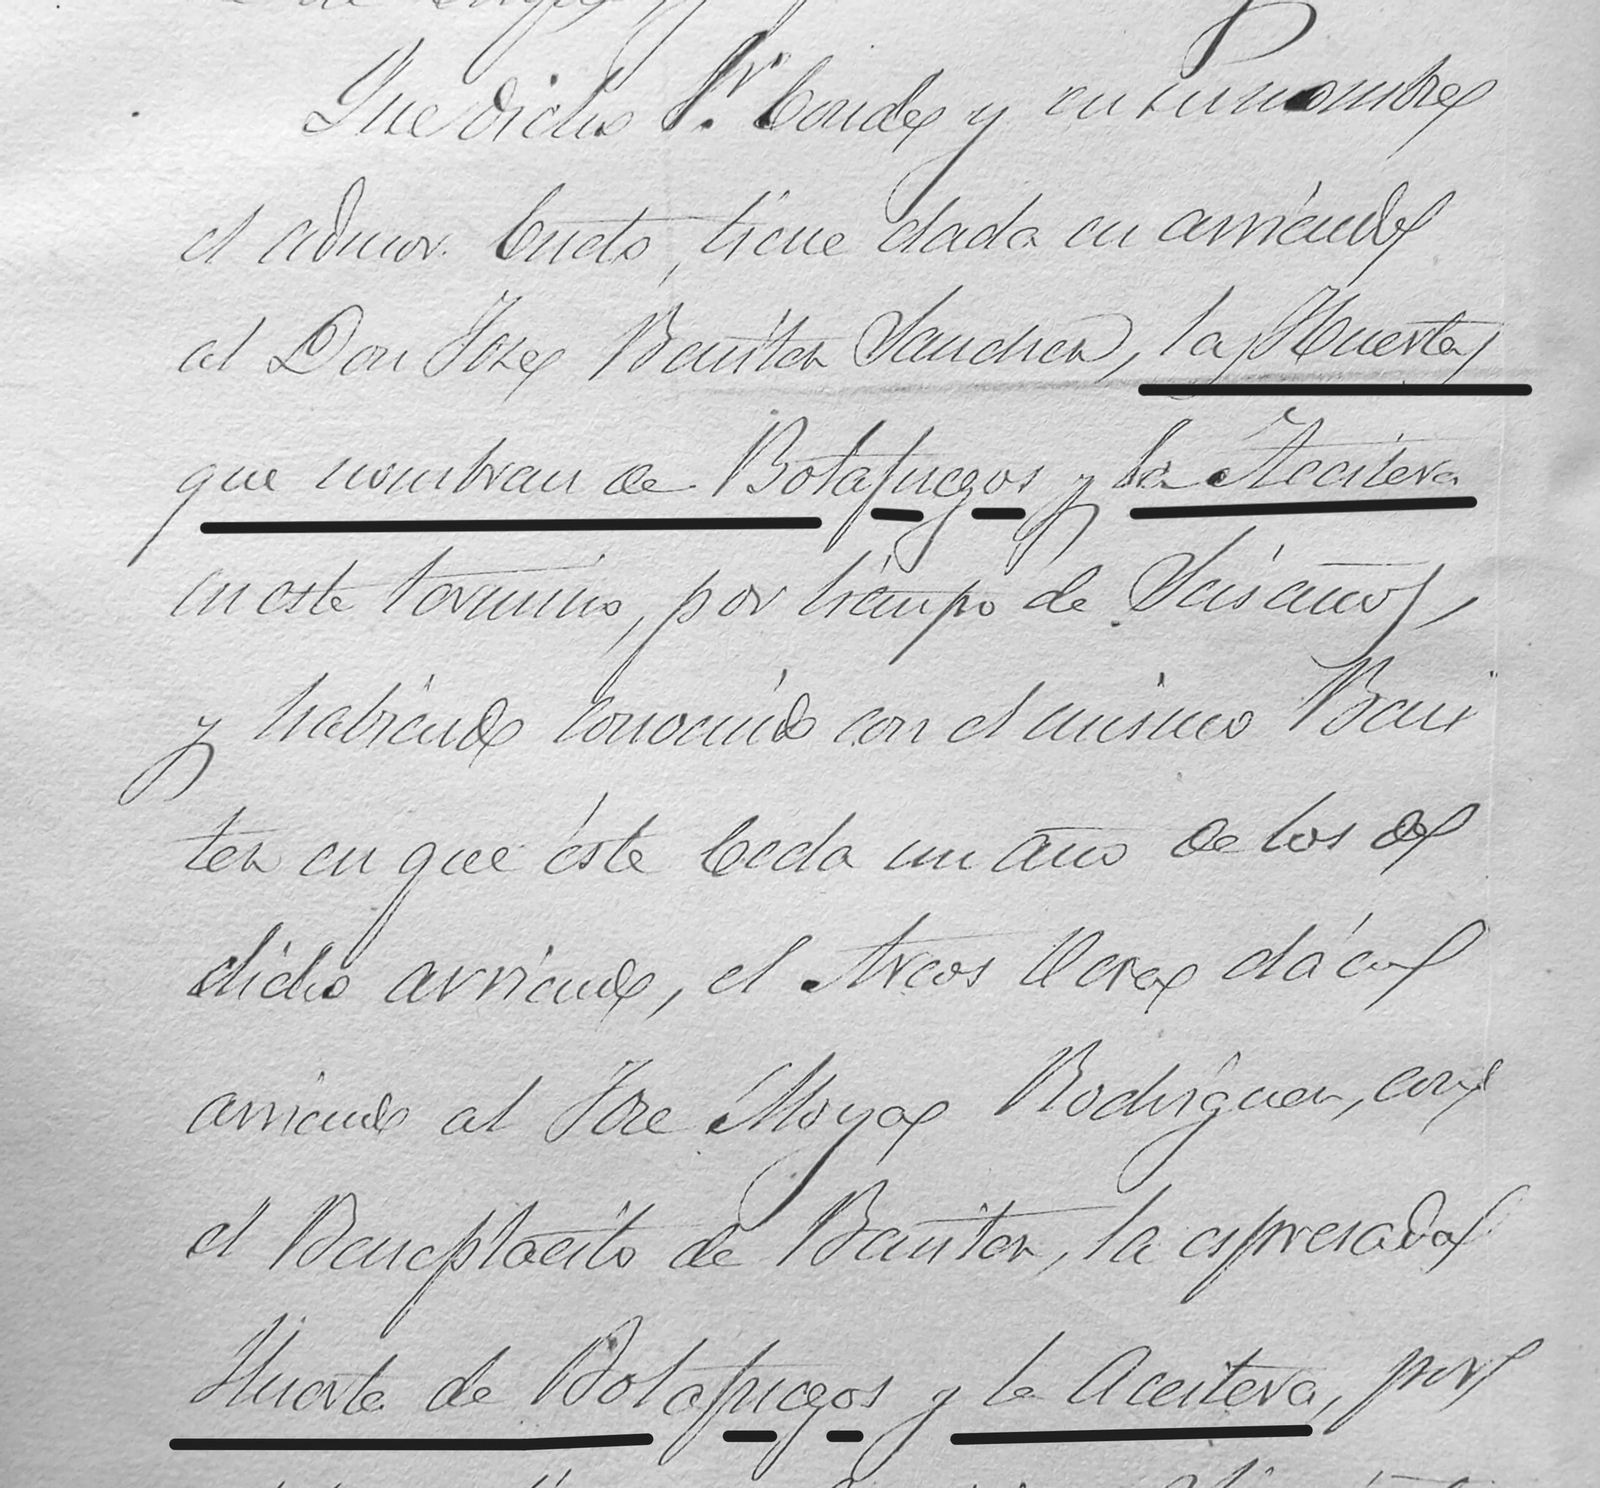 Que dicho Sr. Conde y en su nombre
el admor. Cueto, tiene dada en arriendo
al Don José Benitez Sanchez, la Huerta
que nombran de Botafuegos y la Aceitera
en este termino, por tiempo de Seis años,
y habiendo convenido con el mismo Beni
tez en que éste Ceda un año de los de
dicho arriendo, el Arcos Mera dá en
arriendo al José Moya Rodriguez, con
el Beneplacito de Benitez, la espresada
Huerta de Botafuegos y la Aceitera, por